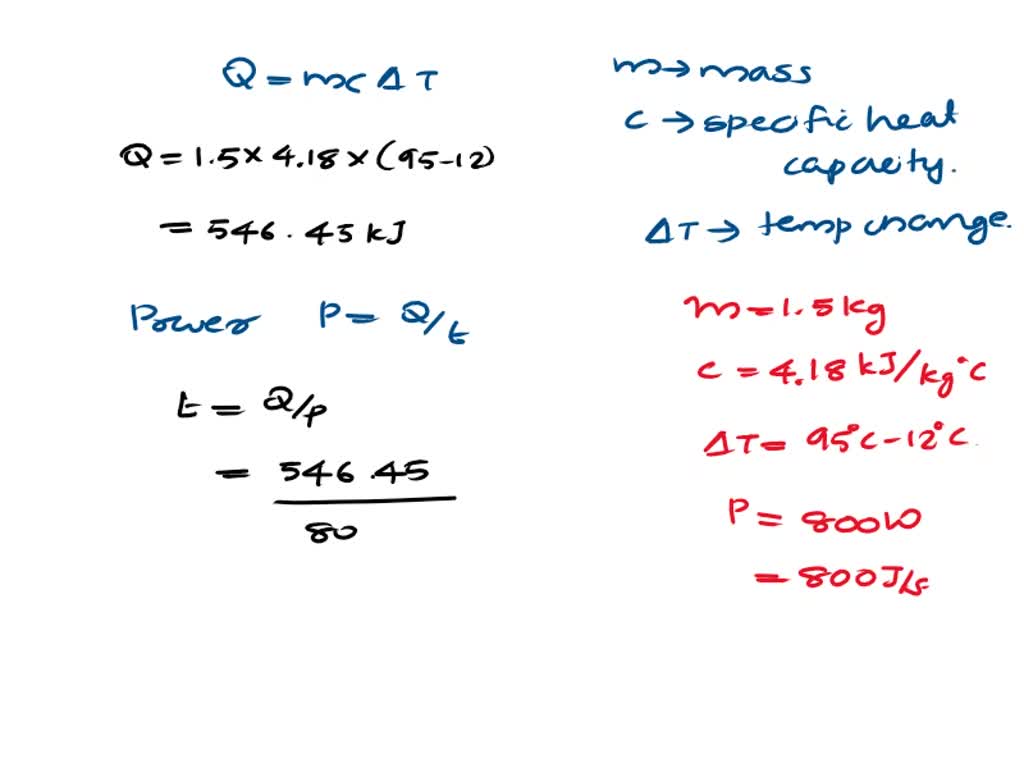 Q = mc Δ T
Q = 1.5 × 4.18 × (95-12)
= 546.45 kJ
Power P = Q/t
t = Q/P
= 546.45
80
m → mass
c → specific heat
capacity.
ΔT → temp change.
m = 1.5 kg
c = 4.18 kJ/kg°C
ΔT = 95°C - 12°C
P = 800W
= 800J/s